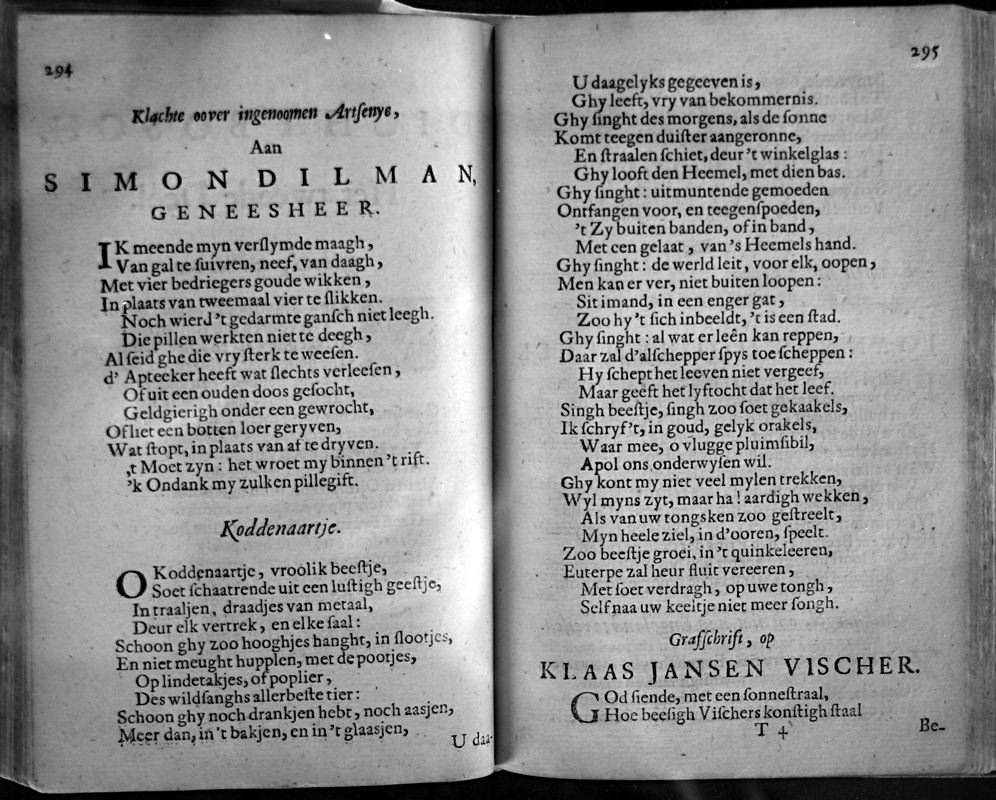 294
Klachte oover ingenoomen Artſenye,
Aan
SIMON DILMAN,
GENEESHEER.
IK meende myn verſlymde maagh,
Van gal te ſuivren, neef, van daagh,
Met vier bedriegers goude wikken,
In plaats van tweemaal vier te ſlikken.
Noch wierd 't gedarmte ganſch niet leegh.
Die pillen werkten niet te deegh,
Al ſeid ghe die vry ſterk te weeſen.
d' Apteeker heeft wat ſlechts verleeſen,
Of uit een ouden doos geſocht,
Geldgierigh onder een gewrocht,
Of liet een botten loer geryven,
Wat ſtopt, in plaats van af te dryven.
,t Moet zyn: het wroet my binnen 't rift.
'k Ondank my zulken pillegift.
Koddenaartje.
O Koddenaartje, vroolik beeſtje,
Soet ſchaatrende uit een luſtigh geeſtje,
In traaljen, draadjes van metaal,
Deur elk vertrek, en elke ſaal:
Schoon ghy zoo hooghjes hanght, in ſlootjes,
En niet meught hupplen, met de pootjes,
Op lindetakjes, of poplier,
Des wildſanghs allerbeſte tier:
Schoon ghy noch drankjen hebt, noch aasjen,
Meer dan, in 't bakjen, en in 't glaasjen,
U daa-
295
U daagelyks gegeeven is,
Ghy leeft, vry van bekommernis.
Ghy ſinght des morgens, als de ſonne
Komt teegen duiſter aangeronne,
En ſtraalen ſchiet, deur 't winkelglas:
Ghy looft den Heemel, met dien bas.
Ghy ſinght: uitmuntende gemoeden
Ontfangen voor, en teegenſpoeden,
't Zy buiten banden, of in band,
Met een gelaat, van 's Heemels hand.
Ghy ſinght: de werld leit, voor elk, oopen,
Men kan er ver, niet buiten loopen:
Sit imand, in een enger gat,
Zoo hy 't ſich inbeeldt, 't is een ſtad.
Ghy ſinght: al wat er leên kan reppen,
Daar zal d'alſchepper ſpys toe ſcheppen:
Hy ſchept het leeven niet vergeef,
Maar geeft het lyftocht dat het leef.
Singh beeſtje, ſingh zoo ſoet gekaakels,
Ik ſchryf't, in goud, gelyk orakels,
Waar mee, o vlugge pluimſibil,
Apol ons onderwyſen wil.
Ghy kont my niet veel mylen trekken,
Wyl myns zyt, maar ha! aardigh wekken,
Als van uw tongsken zoo geſtreelt,
Myn heele ziel, in d'ooren, ſpeelt.
Zoo beeſtje groei, in 't quinkeleeren,
Euterpe zal heur fluit vereeren,
Met ſoet verdragh, op uwe tongh,
Self naa uw keeltje niet meer ſongh.
Grafſchrift, op
KLAAS JANSEN VISCHER.
GOd ſiende, met een ſonneſtraal,
Hoe beeſigh Viſchers konſtigh ſtaal
T 4
Be-